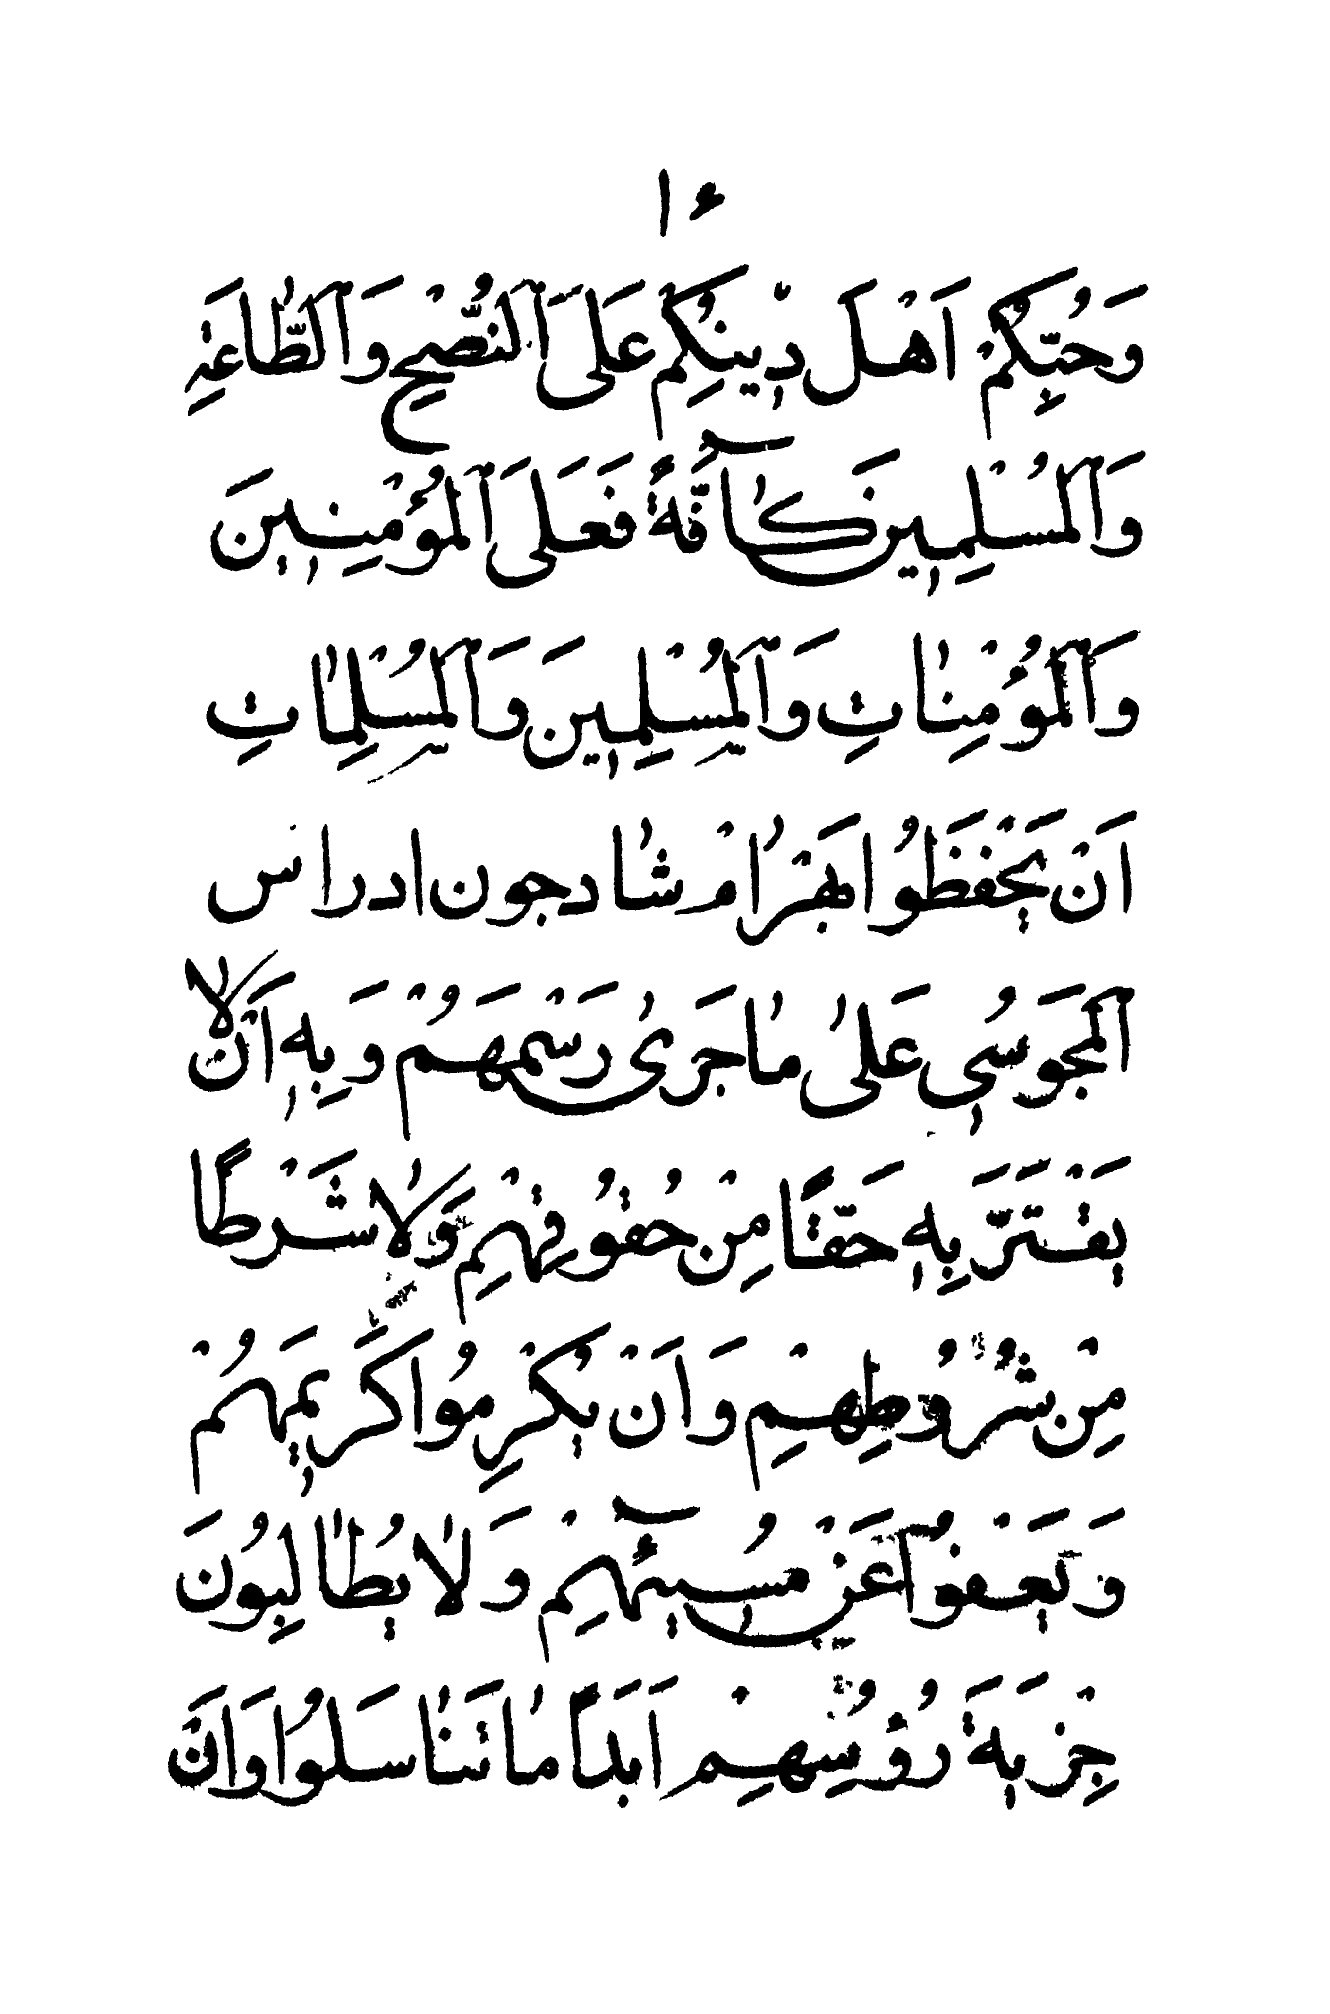 ١٤
وَحُبِّكُمْ اَهْلَ دِيْنِكُمْ عَلَى ٱلنُّصْحِ وَٱلطَّاعَةِ
وَٱلْمُسْلِمِين كَآفَّةً فَعَلَى ٱلْمُؤْمِنِينَ
وَٱلْمُؤْمِنَاتِ وَٱلْمُسْلِمِينَ وَٱلْمُسْلِمَاتِ
اَنْ يَحْفَظُوا بَهْرَامْ شَاد جون ادراس
ٱلْمَجُوسِي عَلَى مَا جَرَى رَسْمَهُمْ وَبِهِ اَنْ لَا
يَقْتَرَّ بِهِ حَقًّا مِنْ حُقُوقِهِمْ وَلَا شَرْطًا
مِنْ شُرُوطِهِمْ وَاَنْ يُكْرِمُوا كَرِيمَهُمْ
وَيَعْفُوا عَنْ مُسِيۤئِهِمْ وَلَا يُطَالِبُونَ
جِزْيَةَ رُؤُسِهِمْ اَبَدًا مَا تَنَاسَلُوا وَاَنْ